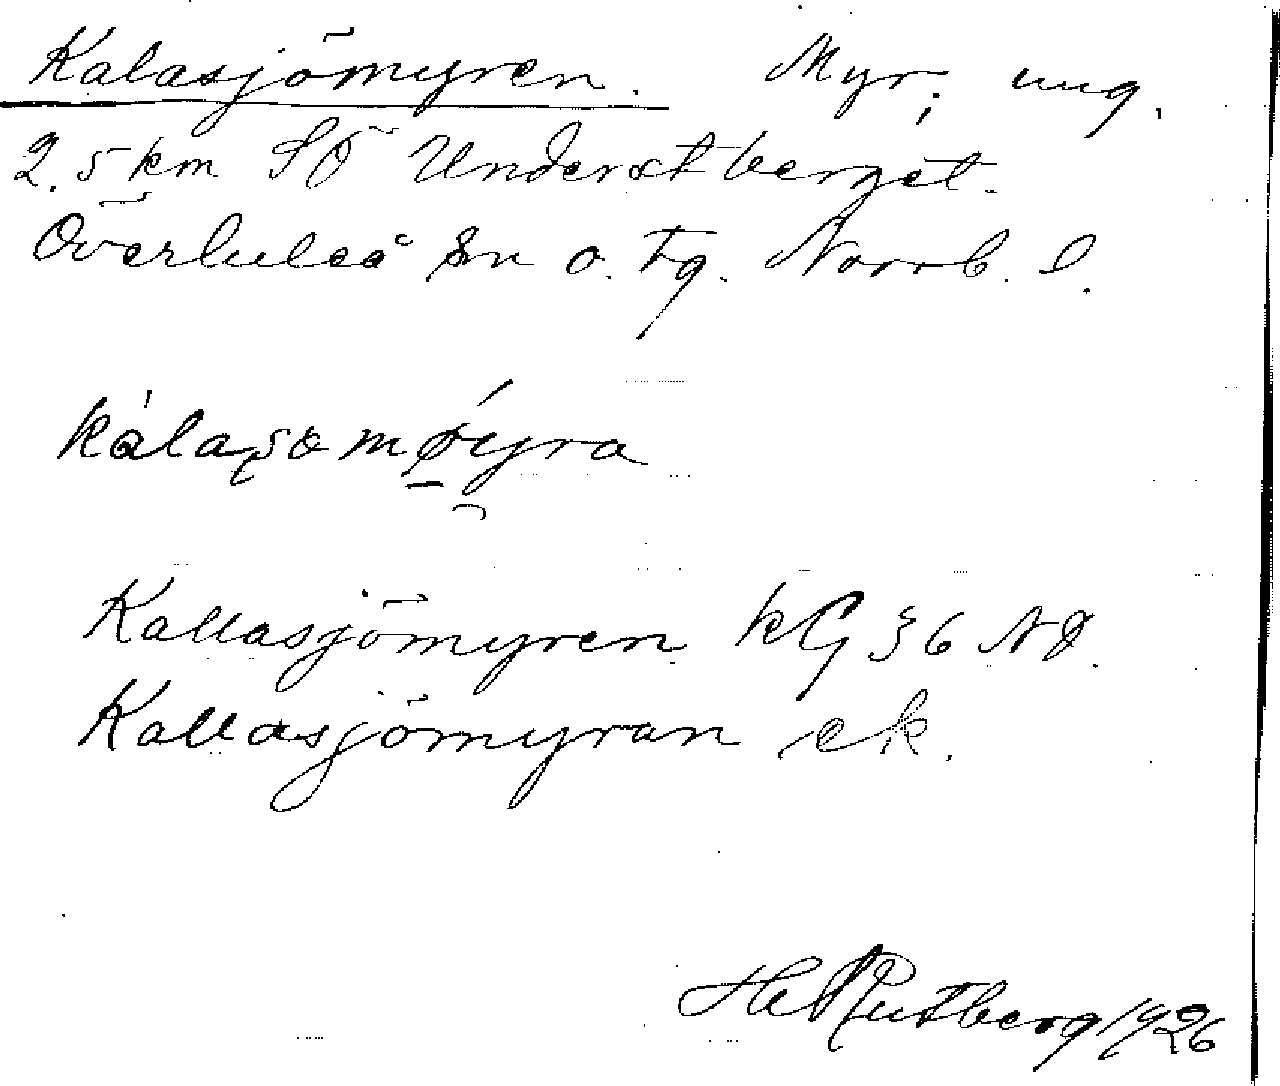 Kalasjömyren. Myr, ung.
2.5 km SÖ Understberget.
Överluleå sn o. tg. Norrb. l.
Kallasjömyren kG 36 NO.
Kallasjömyran ek.
H Rutberg 1926